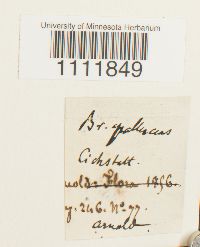 University of Minnesota Herbarium
1111849
Br. pallescens
Eichstätt.
Flora 1856.
p. 246. No 77.
Arnold.